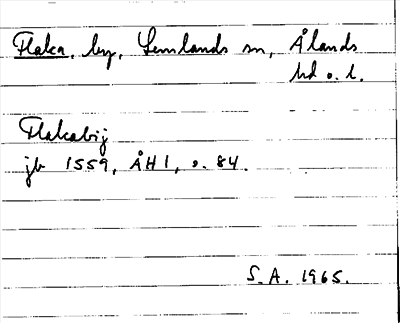 Flaka, by, Lemlands sn, Ålands
hd o. l.
Flakabij
jb 1559, ÅH 1, s. 84.
S.A. 1965.